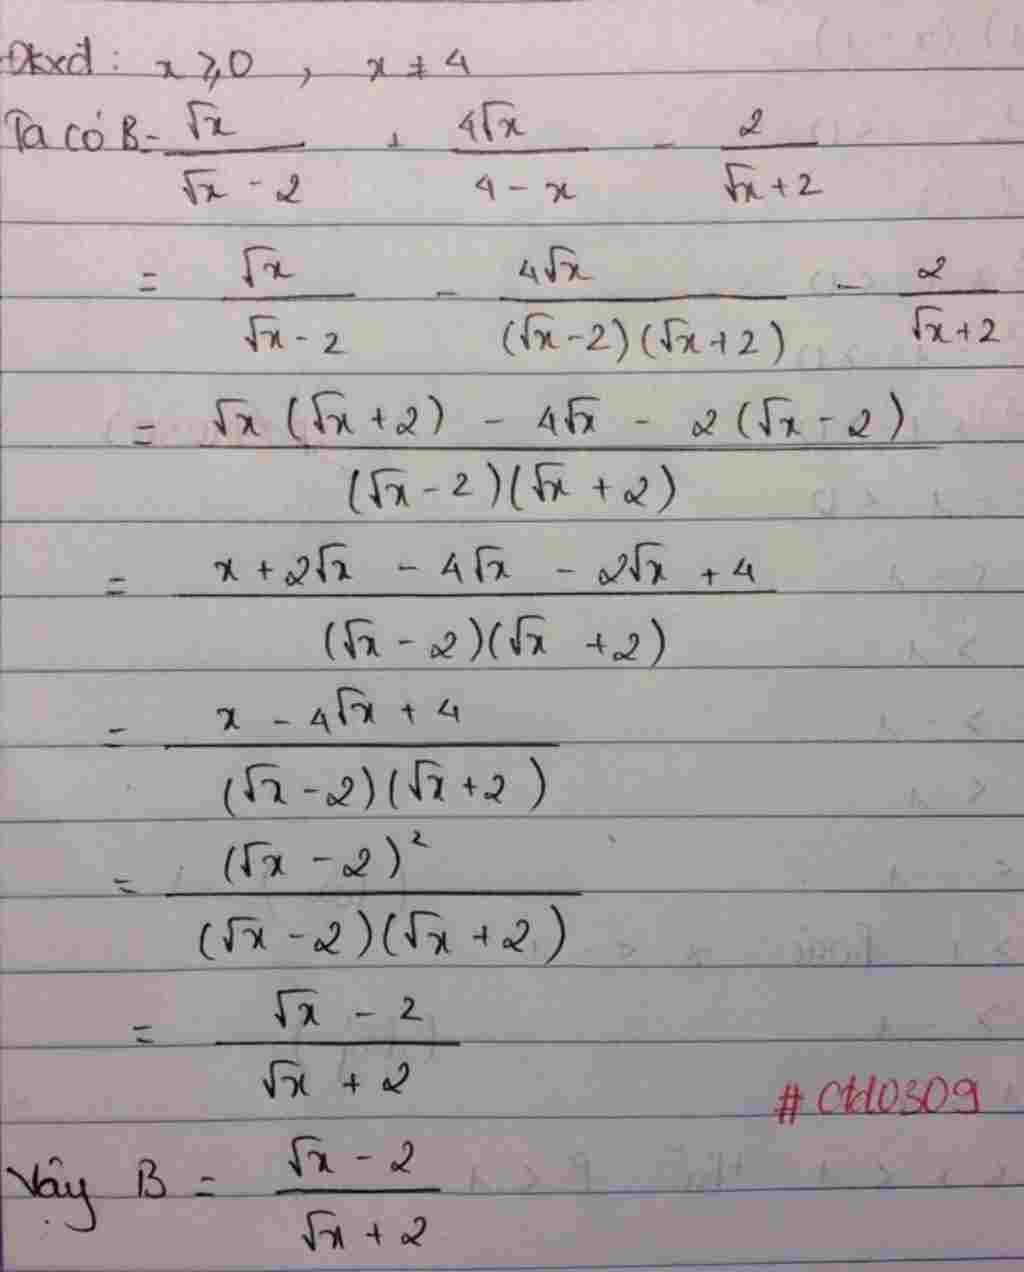 Đkxđ: x ⩾ 0 , x ≠ 4
Ta có B = √x / (√x - 2) + 4√x / (4 - x) - 2 / (√x + 2)
= √x / (√x - 2) - 4√x / ((√x - 2)(√x + 2)) - 2 / (√x + 2)
= (√x (√x + 2) - 4√x - 2(√x - 2)) / ((√x - 2)(√x + 2))
= (x + 2√x - 4√x - 2√x + 4) / ((√x - 2)(√x + 2))
= (x - 4√x + 4) / ((√x - 2)(√x + 2))
= (√x - 2)² / ((√x - 2)(√x + 2))
= (√x - 2) / (√x + 2)
Vậy B = (√x - 2) / (√x + 2)